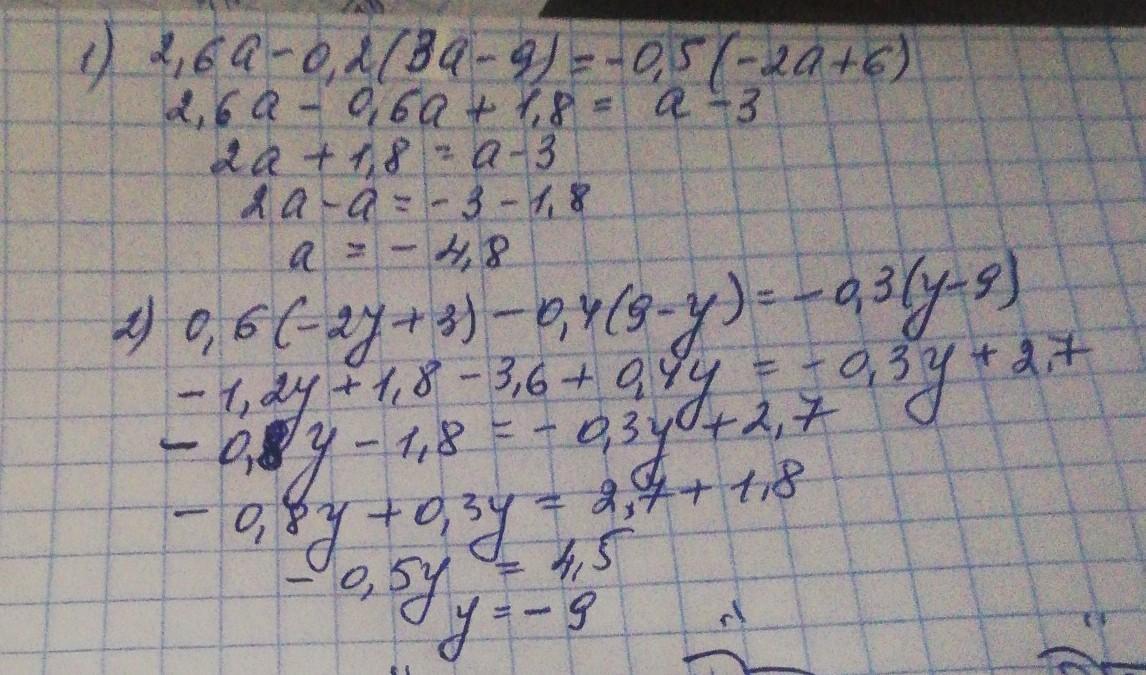 1) 2,6a - 0,2(3a - 9) = -0,5(-2a + 6)
2,6a - 0,6a + 1,8 = a - 3
2a + 1,8 = a - 3
2a - a = -3 - 1,8
a = -4,8
2) 0,6(-2y + 3) - 0,4(9 - y) = -0,3(y - 9)
-1,2y + 1,8 - 3,6 + 0,4y = -0,3y + 2,7
-0,8y - 1,8 = -0,3y + 2,7
-0,8y + 0,3y = 2,7 + 1,8
-0,5y = 4,5
y = -9